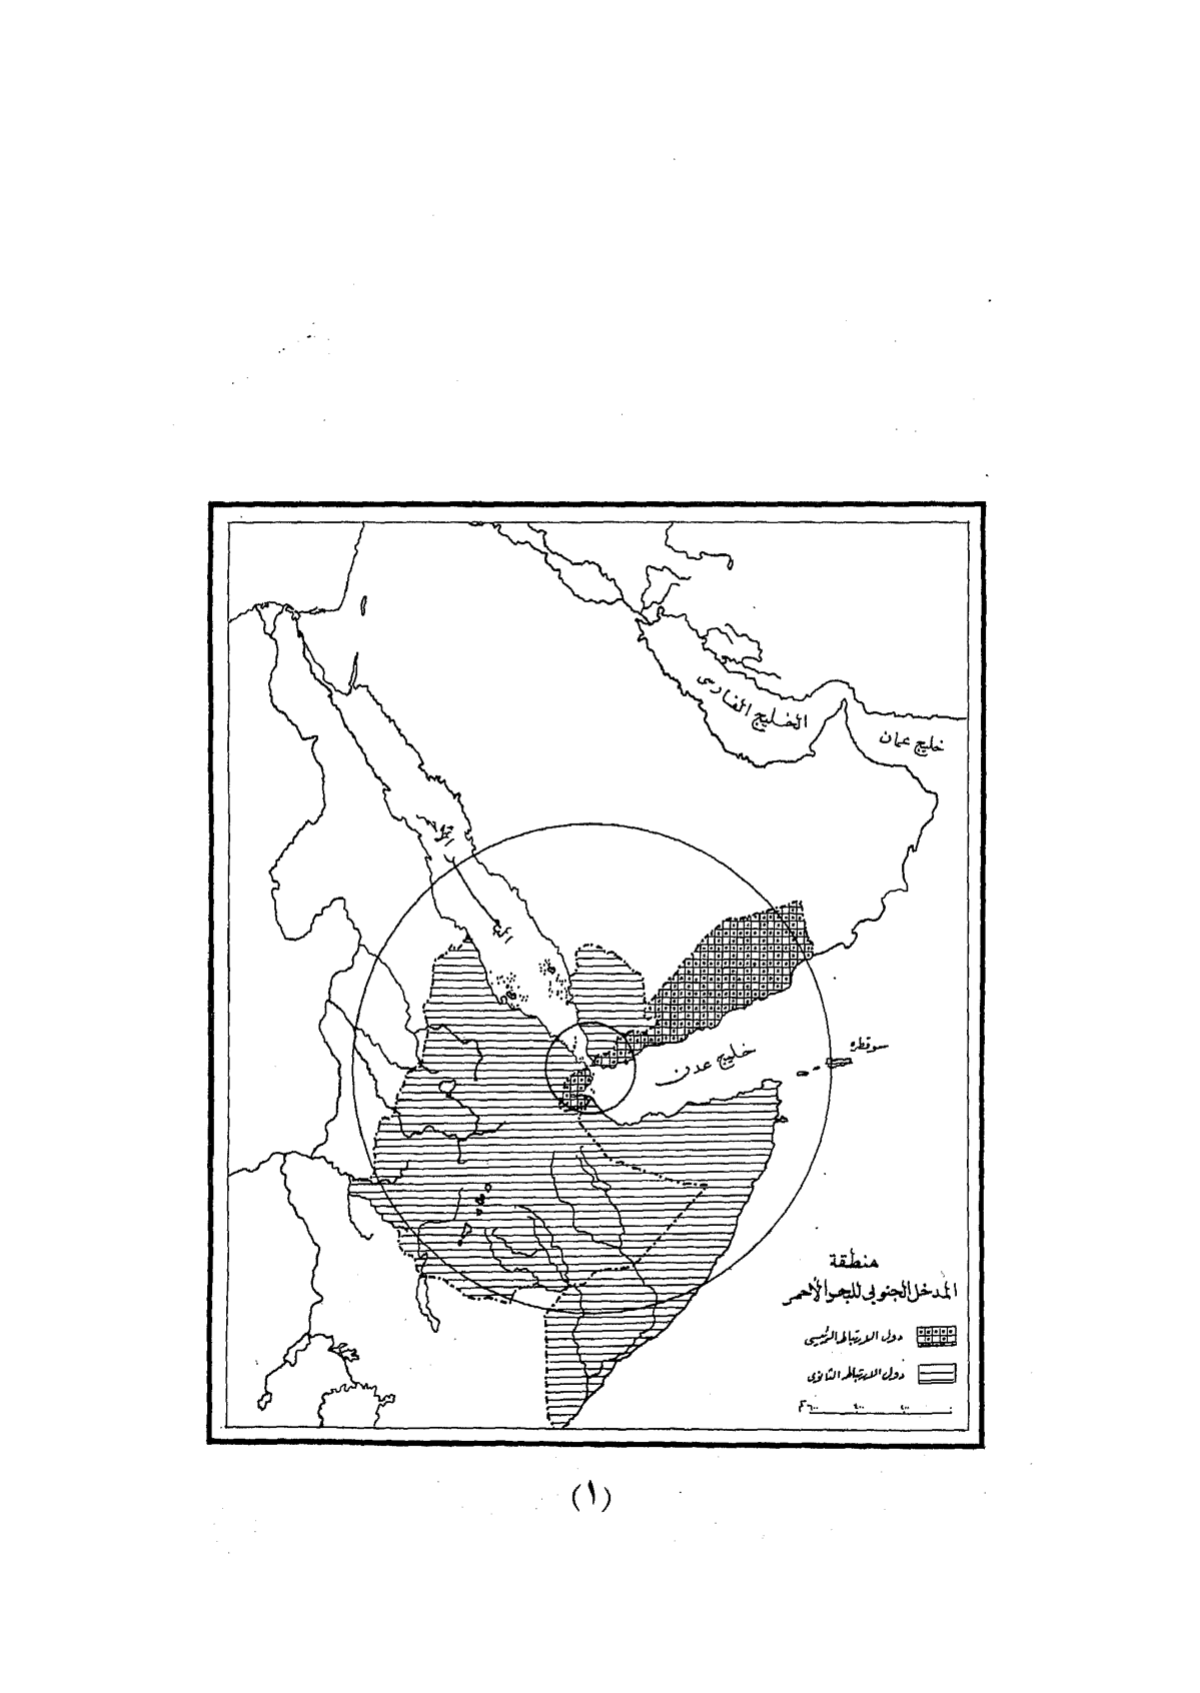 الخليج الفارسى
خليج عمان
البحر
خليج عدن
سوقطره
منطقة
المدخل الجنوبى للبحر الأحمر
دول الارتباط الرئيسى
دول الارتباط الثانوى
(١)